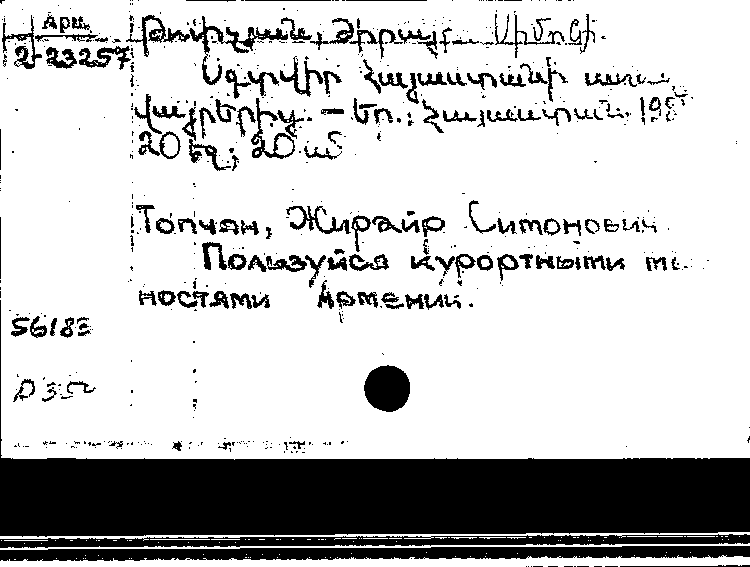 Арм.
2-23257
Թոփչյան, Ժիրայր Սիմոնի.
Օգտվիր Հայաստանի առող
վայրերից. — Եր.: Հայաստան. 198
20 եզ; 20 սմ
Топчян, Жирайр Симонович
Пользуйся курортными
ностями Армении.
56183